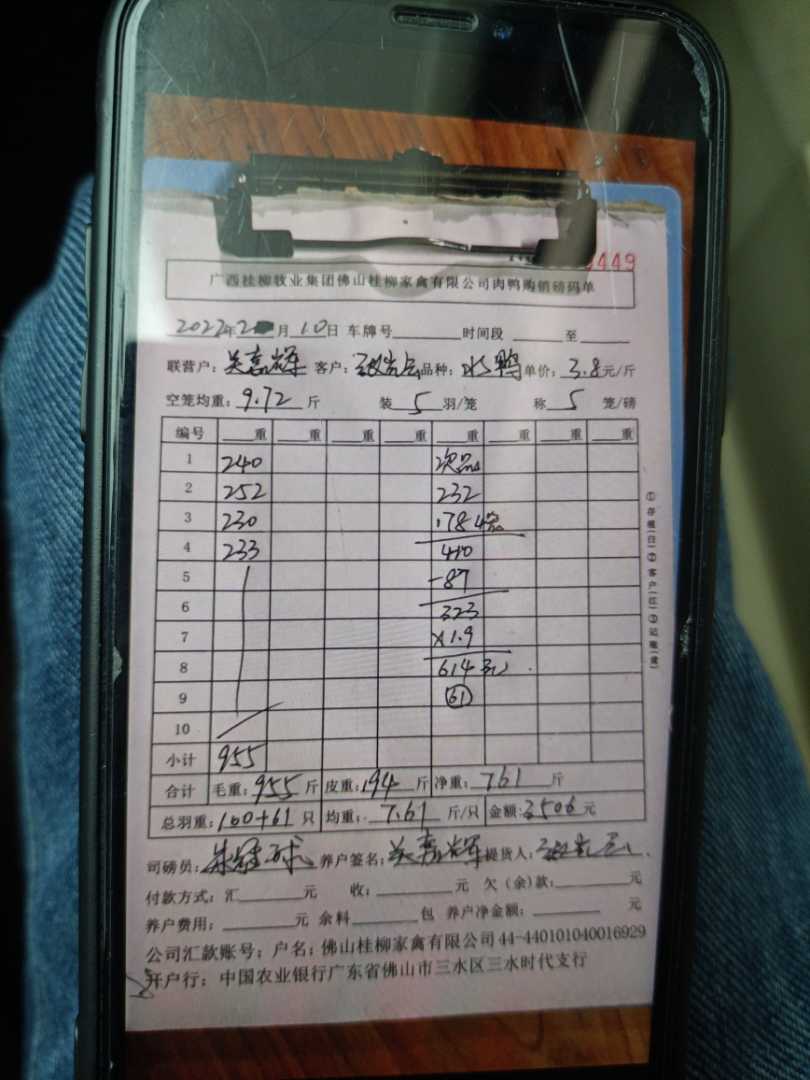 9449
广西桂柳牧业集团佛山桂柳家禽有限公司肉鸭购销磅码单
2022年2月10日 车牌号 时间段 至
联营户: 客户: 品种: 水鸭 单价: 3.8元/斤
空笼均重: 9.72 斤 装 5 羽/笼 称 5 笼/磅
编号 重 重 重 重 重 重 重 重
1 240 次品
2 252 232
3 230 178 4笼
4 233 410
5 -87
6 323
7 X1.9
8 614元
9 61
10
小计 955
合计 毛重: 955 斤 皮重: 194 斤 净重: 761 斤
总羽重: 100+61 只 均重: 7.61 斤/只 金额: 3506 元
司磅员: 养户签名: 提货人:
付款方式: 汇 元 收: 元 欠(余)款: 元
养户费用: 元 余料 包 养户净金额: 元
公司汇款账号; 户名; 佛山桂柳家禽有限公司 44-440101040016929
开户行; 中国农业银行广东省佛山市三水区三水时代支行
①存根(白)②客户(红)③运输(黄)